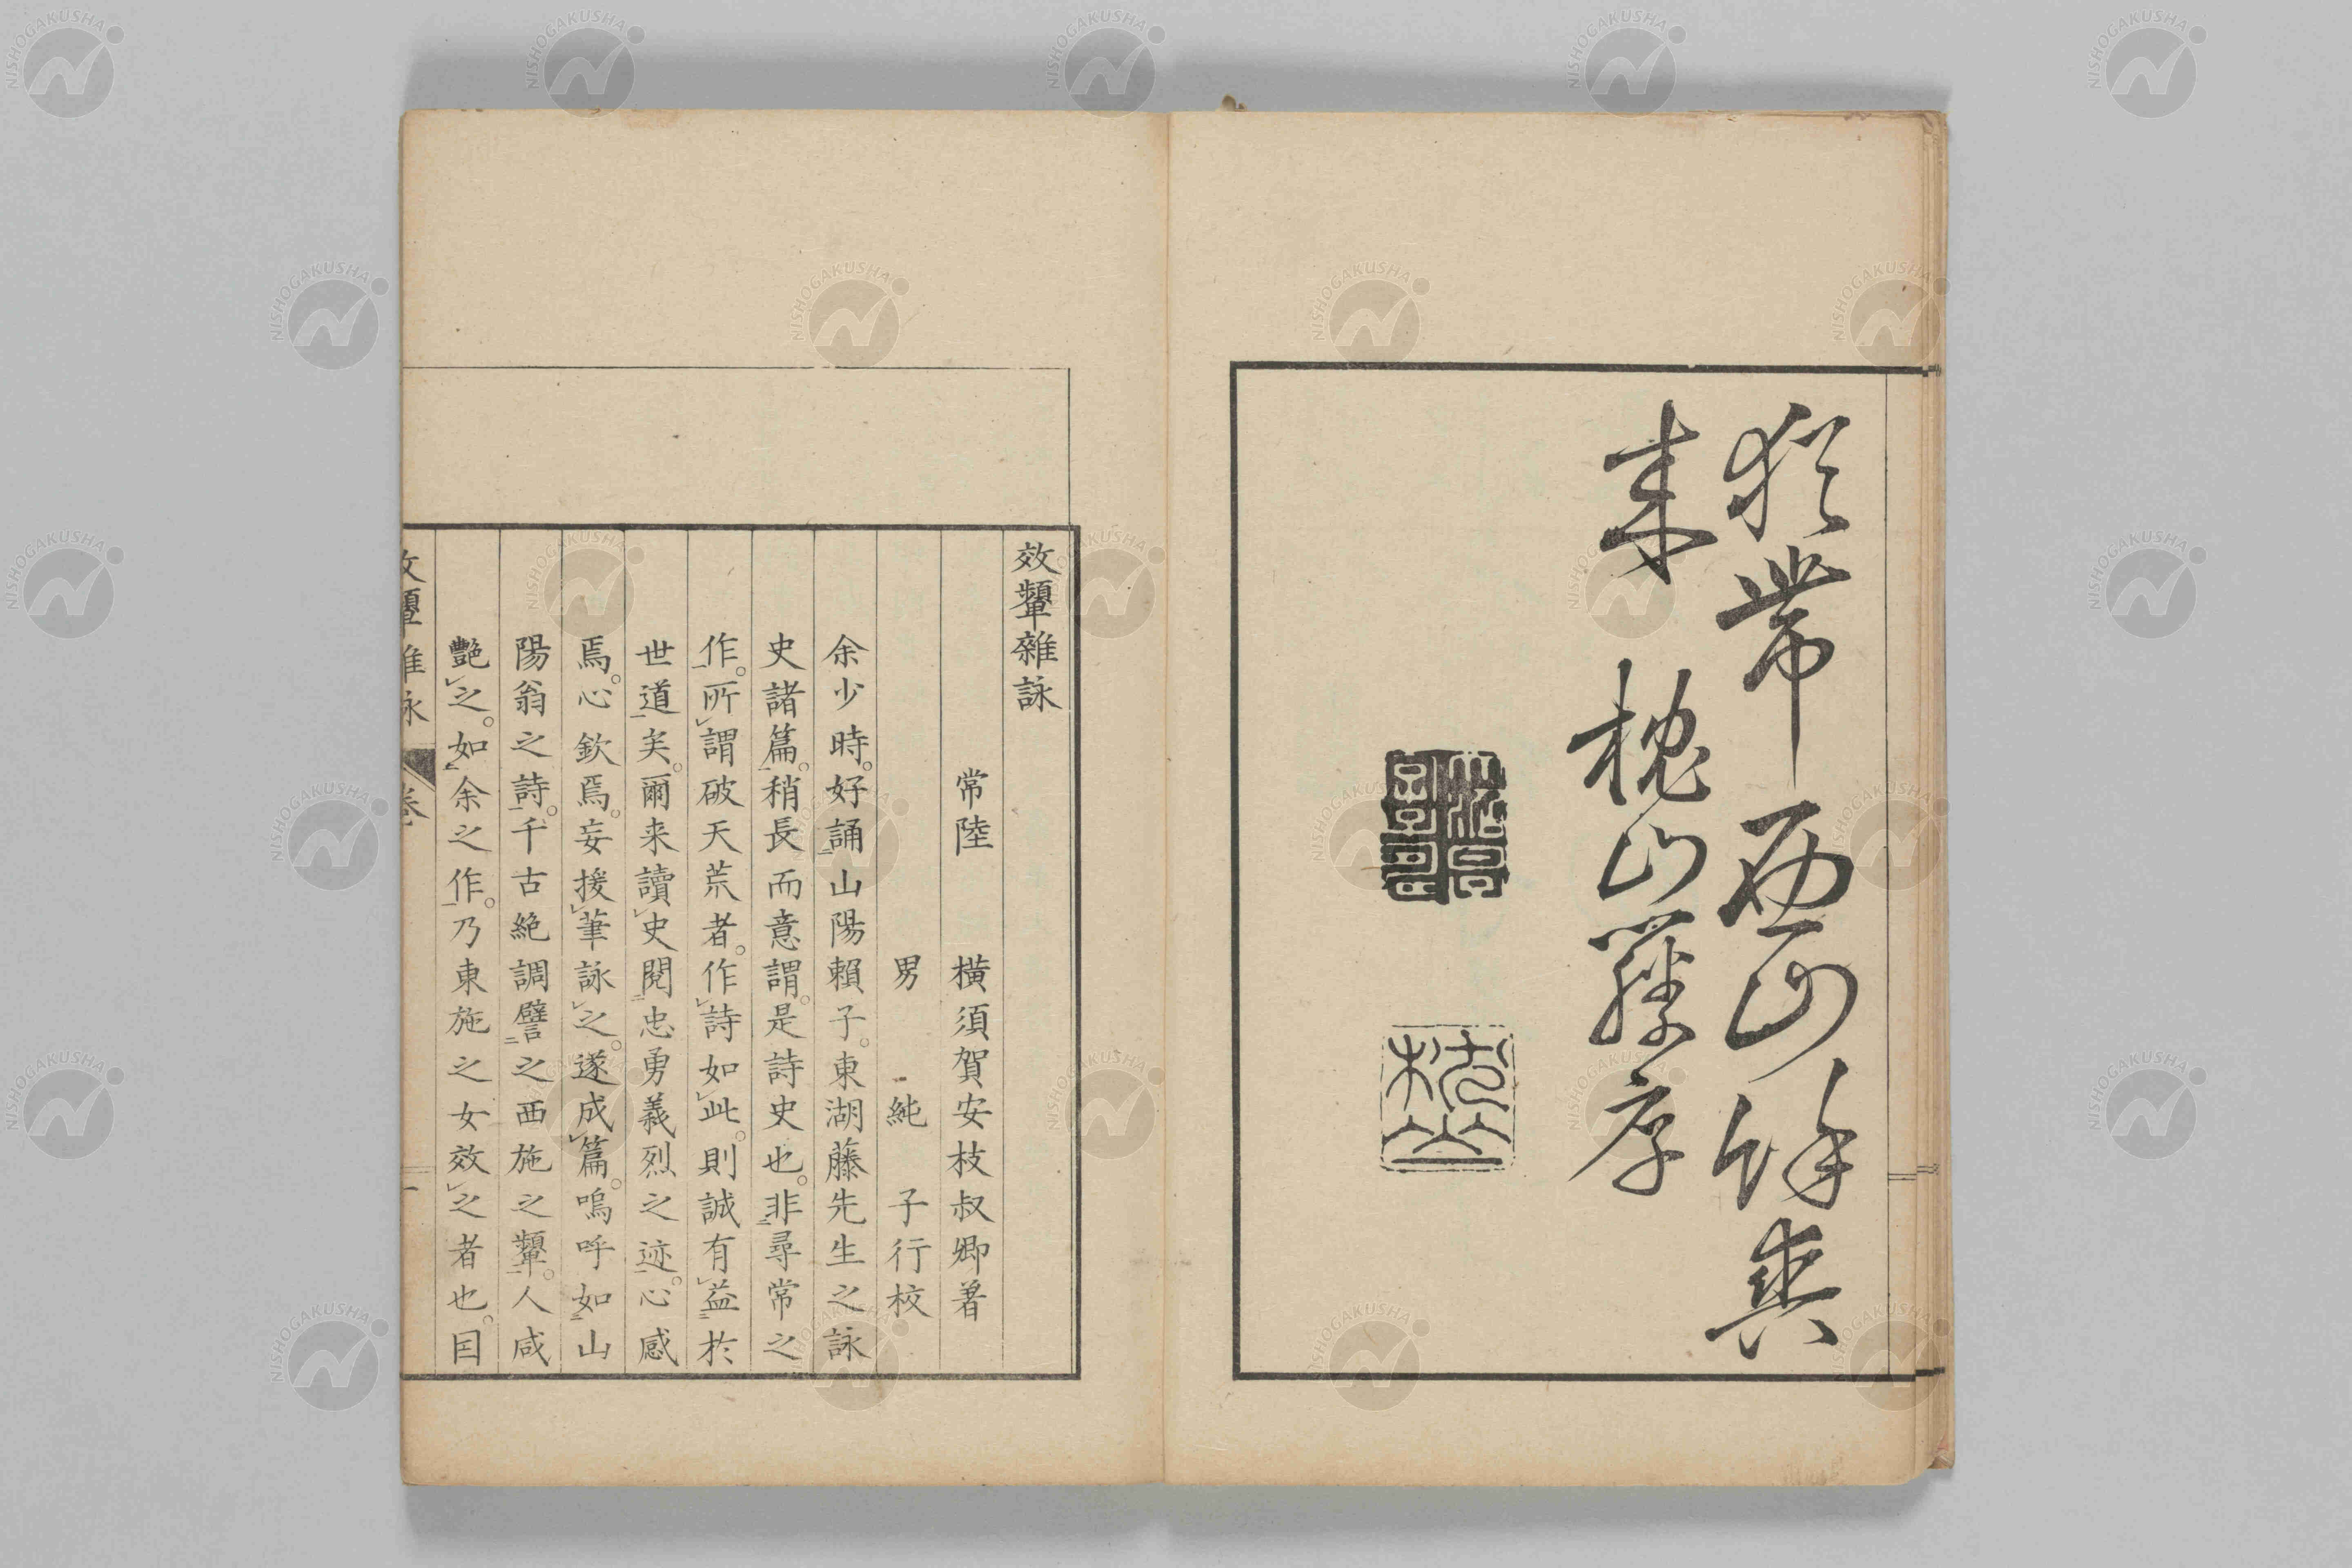 猶帶西山餘爽
来　槐山藤序
槐山
效顰雜詠
常陸　橫須賀安枝叔卿著
男　純　子行校
余少時。好誦山陽賴子。東湖藤先生之詠
史諸篇。稍長而意謂。是詩史也。非尋常之
作。所謂破天荒者。作詩如此。則誠有益於
世道矣。爾来讀史閱忠勇義烈之迹。心感
焉。心欽焉。妄援筆詠之。遂成篇。嗚呼如山
陽翁之詩。千古絶調譬之西施之顰。人咸
艷之。如余之作。乃東施之女效之者也。因
效顰雜詠　卷　一
NISHOGAKUSHA